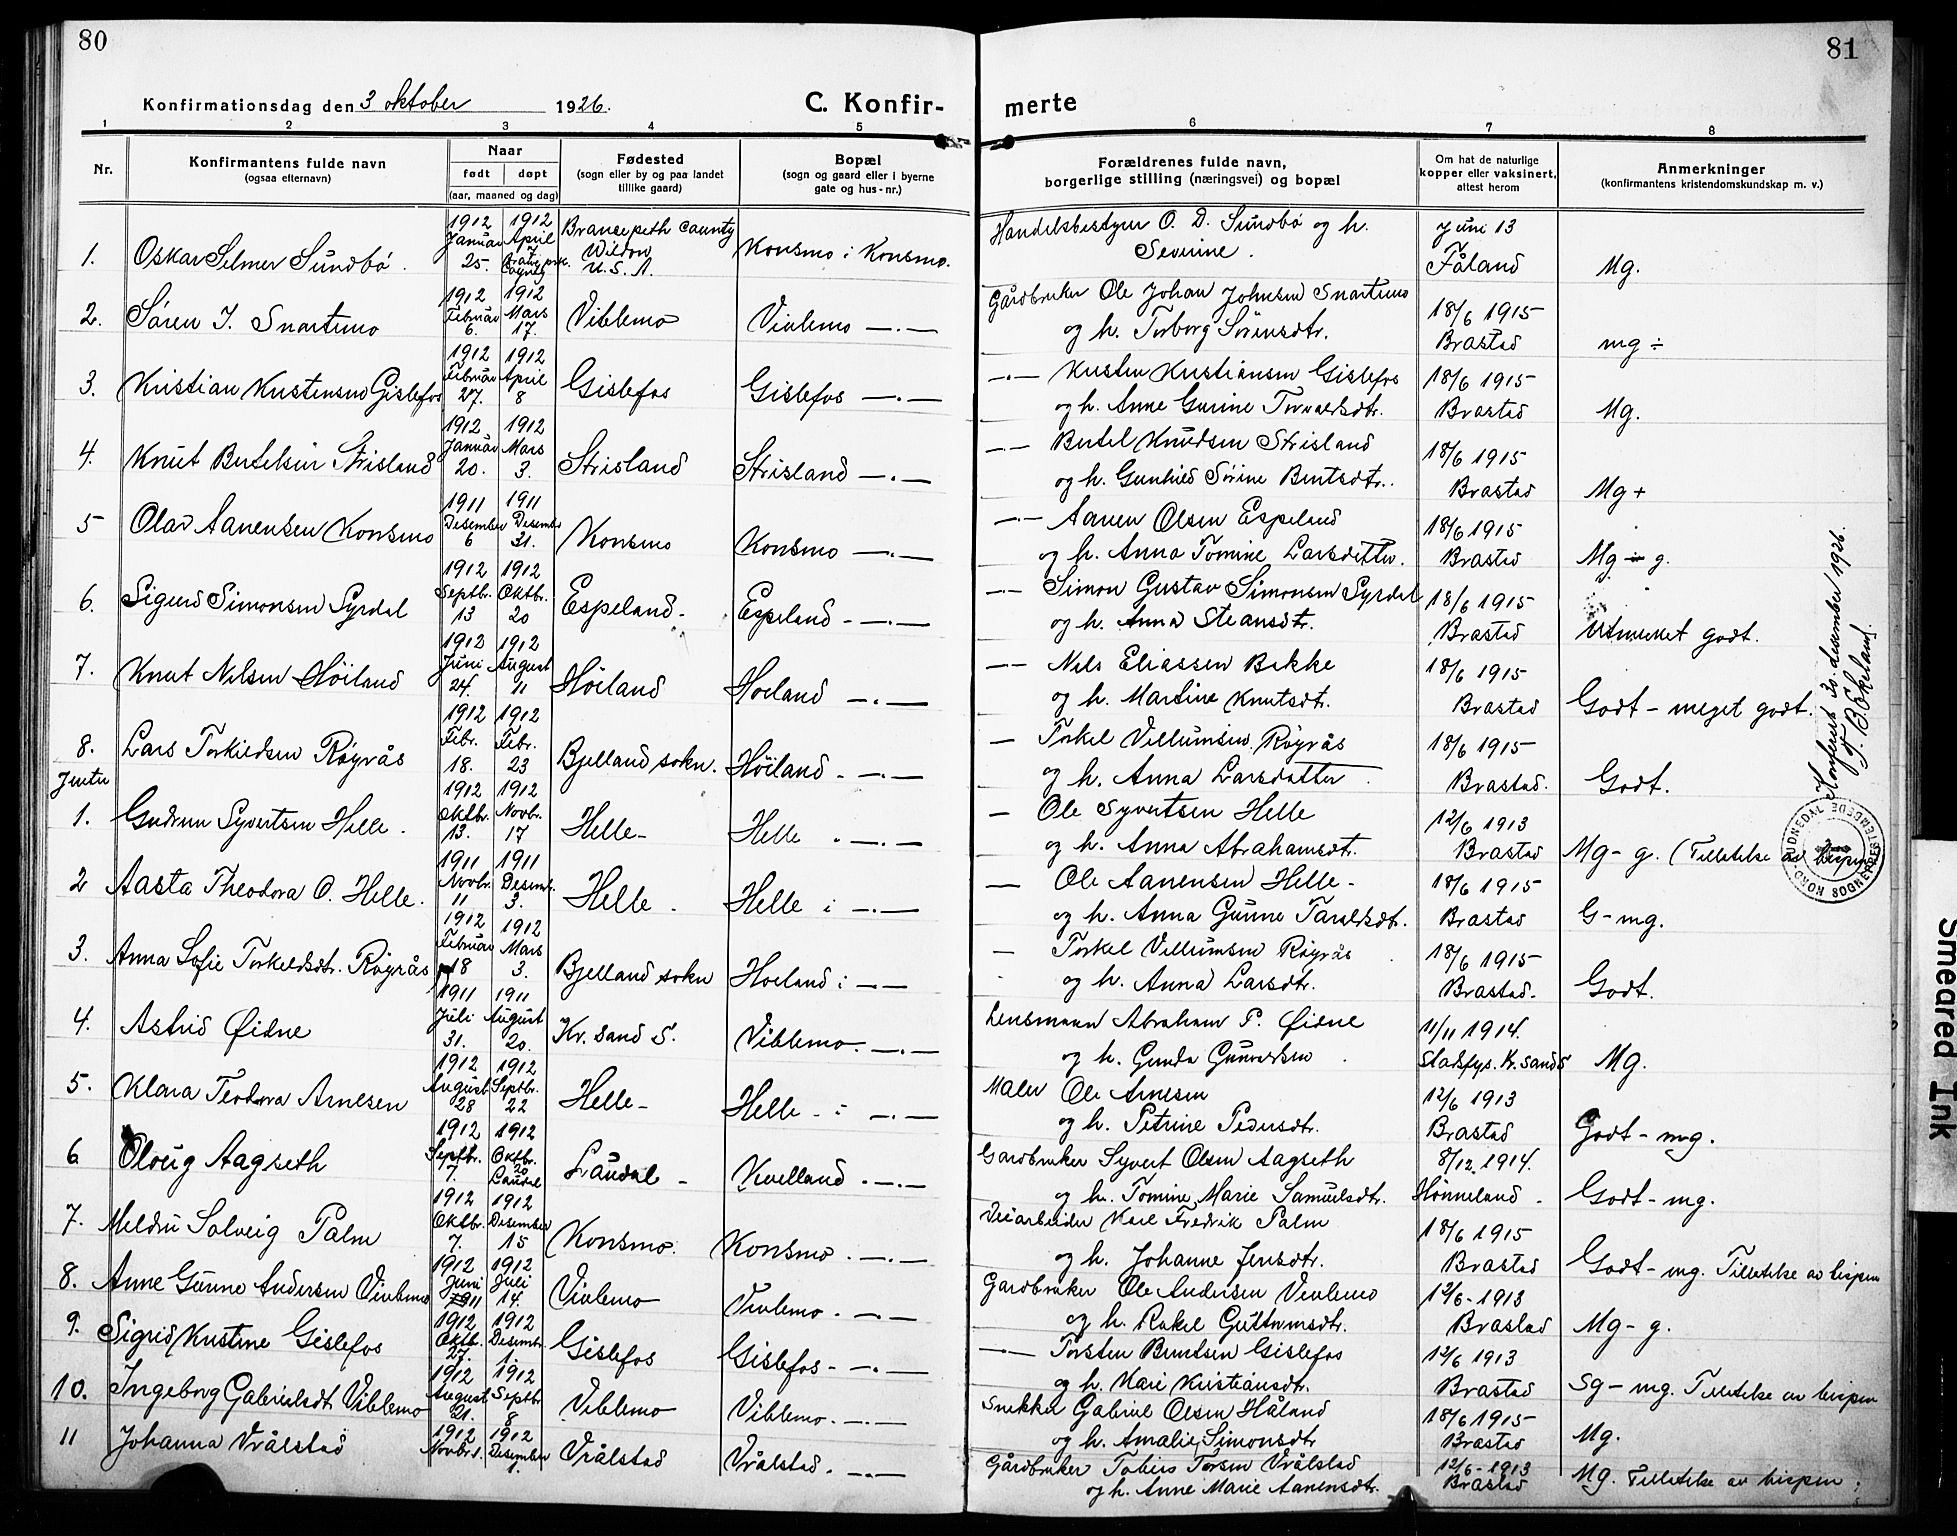 80
81
Konfirmationsdag den 3 oktober 1926.
C. Konfir-
merte
1 2 3 4 5 6 7 8
Nr.
Konfirmantens fulde navn
(ogsaa efternavn)
Naar
født døpt
(aar, maaned og dag)
Fødested
(sogn eller by og paa landet
tillike gaard)
Bopæl
(sogn og gaard eller i byerne
gate og hus-nr.)
Forældrenes fulde navn,
borgerlige stilling (næringsvei) og bopæl
Om hat de naturlige
kopper eller vaksinert,
attest herom
Anmerkninger
(konfirmantens kristendomskundskap m. v.)
1912 1912 Handelsbestyrer O. D. Sundbø og h. Juni 13
1. Oskar Selmer Sundbø. Januar 25. April 7 County U.S.A. Konsmo i Konsmo. Severine. Fåland Mg.
1912 1912 Gårdbruker Ole Johan Johnsen Snartemo 18/6 1915
2. Søren J. Snartemo Februar 6. Mars 17. Viblemo Vivlemo —.— og h. Torborg Sörensdtr. Brastad mg ÷
1912 1912 —.— Kristen Kristiansen Gislefos 18/6 1915
3. Kristian Kristensen Gislefos Februar 27. April 8 Gislefos Gislefos —.— og h. Anne Gurine Torvaldsdtr. Brastad Mg.
1912 1912 —.— Bertel Knudsen Strisland 18/6 1915
4. Knut Bertelsen Strisland Januar 20. Mars 3. Strisland Strisland —.— og h. Gunhild Sörine Berntsdtr. Brastad Mg +
1911 1911 —.— Aanen Olsen Espeland 18/6 1915
5 Olav Aanensen Konsmo Desember 6 Desember 31. Konsmo Konsmo —.— og h. Anna Tomine Larsdatter. Brastad Mg - g.
1912 1912 —.— Simon Gustav Simonsen Syrdal 18/6 1915
6. Sigurd Simonsen Syrdal Septbr. 13 Oktbr. 20 Espeland. Espeland - —.— og h. Anna Steansdtr. Brastad Utmerket godt.
1912 1912 —.— Nils Eliassen Bakke 18/6 1915
7. Knut Nilsen Höiland Juni 24. August 11 Höiland Hoeland —.— og h. Martine Knutsdtr. Brastad Godt - meget godt.
1912 1912 — Torkel Villumsen Röyrås 18/6 1915
8. Lars Torkildsen Röyrås Febr. 18. Febr. 23 Bjelland sokn. Höiland. —.— og h. Anna Larsdatter. Brastad. Godt.
Jenter
1912 1912 — Ole Syvertsen Helle 12/6 1913
1. Gudrun Syvertsen Helle. Oktbr. 13. Novbr. 17 Helle- Helle . —.— og h. Anna Abrahamsdtr. Brastad Mg - g. (Tilletelse av bispen
1911 1911 — Ole Aanensen Helle - 18/6 1915
2 Aasta Theodora O. Helle. Novbr. 11 Desemb. 3. Helle . Helle i —.— og h. Anna Gunne Taraldsdtr. Brastad G - mg.
1912 1912 — Torkel Villumsen Röyrås 18/6 1915
3. Anna Sofie Torkeldsdtr. Röyrås Februar 18 Mars 3. Bjelland sokn Hoeland i —.— og h. Anna Larsdtr. Brastad. Godt.
1911 1911 Lensmann Abraham P. Øidne 11/11 1914.
4. Astrid Øidne Juli 31. August 20. Kr. sand S. Viblemo. —.— og h. Gunda Gunvaldsen . Stadsfys. Kr. sand S Mg.
1912 1912 Maler Ole Arnesen 12/6 1913
5. Klara Teodora Arnesen August 28 Septbr. 22 Helle- Helle - i —.— og h. Petrine Pedersdtr. Brastad Godt - mg.
1912 1912 Gardbruker Syvert Olsen Aagseth 8/12. 1914.
6 Oloug Aagseth Septbr. 7. Oktbr. 20 Laudal Laudal - Kvelland . —.— og h. Tomine Marie Samuelsdtr. Hönneland . Godt - mg.
1912 1912 Veiarbeider Karl Fredrik Palm 18/6 1915
7. Meldri Solveig Palm Oktbr. 7. Desember 15 Konsmo. Konsmo . —.— og h. Johanne Jensdtr. Brastad Godt - mg. Tilletelse av bispen
1912 1912 Gardbruker Ole Andersen Vivlemo 12/6 - 1913
8. Anne Gunne Andersen Vivlemo Juni Juli 14. Vivlemo Vivlemo . —.— og h. Rakel Guttormsdtr. Brastad Mg - g.
1912 1912 —.— Torsten Berntsen Gislefos 12/6 1913
9. Sigrid Kristine Gislefos Oktb. 27. Desembr. 1. Gislefos Gislefos- —.— og h. Mari Kristiansdtr. Brastad Sg - mg. Tilletelse av bispen
1912 1912 Snekker Gabriel Olsen Håland 18/6 1915
10. Ingeborg Gabrielsdt Viblemo August 21. Septbr 8 Viblemo Viblemo. —.— og h. Amalie Simonsdtr Brastad Mg.
1912 1912 Gårdbruker Tobias Torsen Vrålstad 12/6 - 1913
11 Johanna Vrålstad Novbr 1. Desember 1. Vrålstad Vrålstad. —.— og h. Anne Marie Aanensdtr. Brastad Mg. Tilletelse av bispen
Konferert 30 desember 1926.
T. B. Ekeland.
NORD AUDNEDAL SOGNEPRESTEMBEDE
Smeared Ink